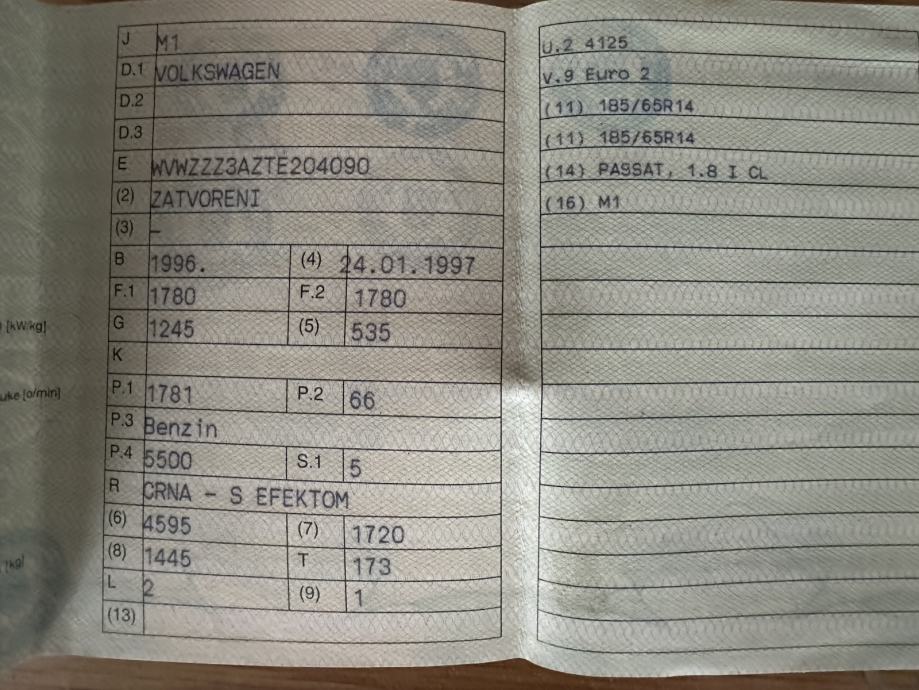 J M1
D.1 VOLKSWAGEN
D.2
D.3
E WVWZZZ3AZTE204090
(2) ZATVORENI
(3) –
B 1996. (4) 24.01.1997
F.1 1780 F.2 1780
G 1245 (5) 535
K
P.1 1781 P.2 66
P.3 Benzin
P.4 5500 S.1 5
R CRNA - S EFEKTOM
(6) 4595 (7) 1720
(8) 1445 T 173
L 2 (9) 1
(13)
[kW/kg]
[o/min]
[kg]
U.2 4125
V.9 Euro 2
(11) 185/65R14
(11) 185/65R14
(14) PASSAT, 1.8 I CL
(16) M1